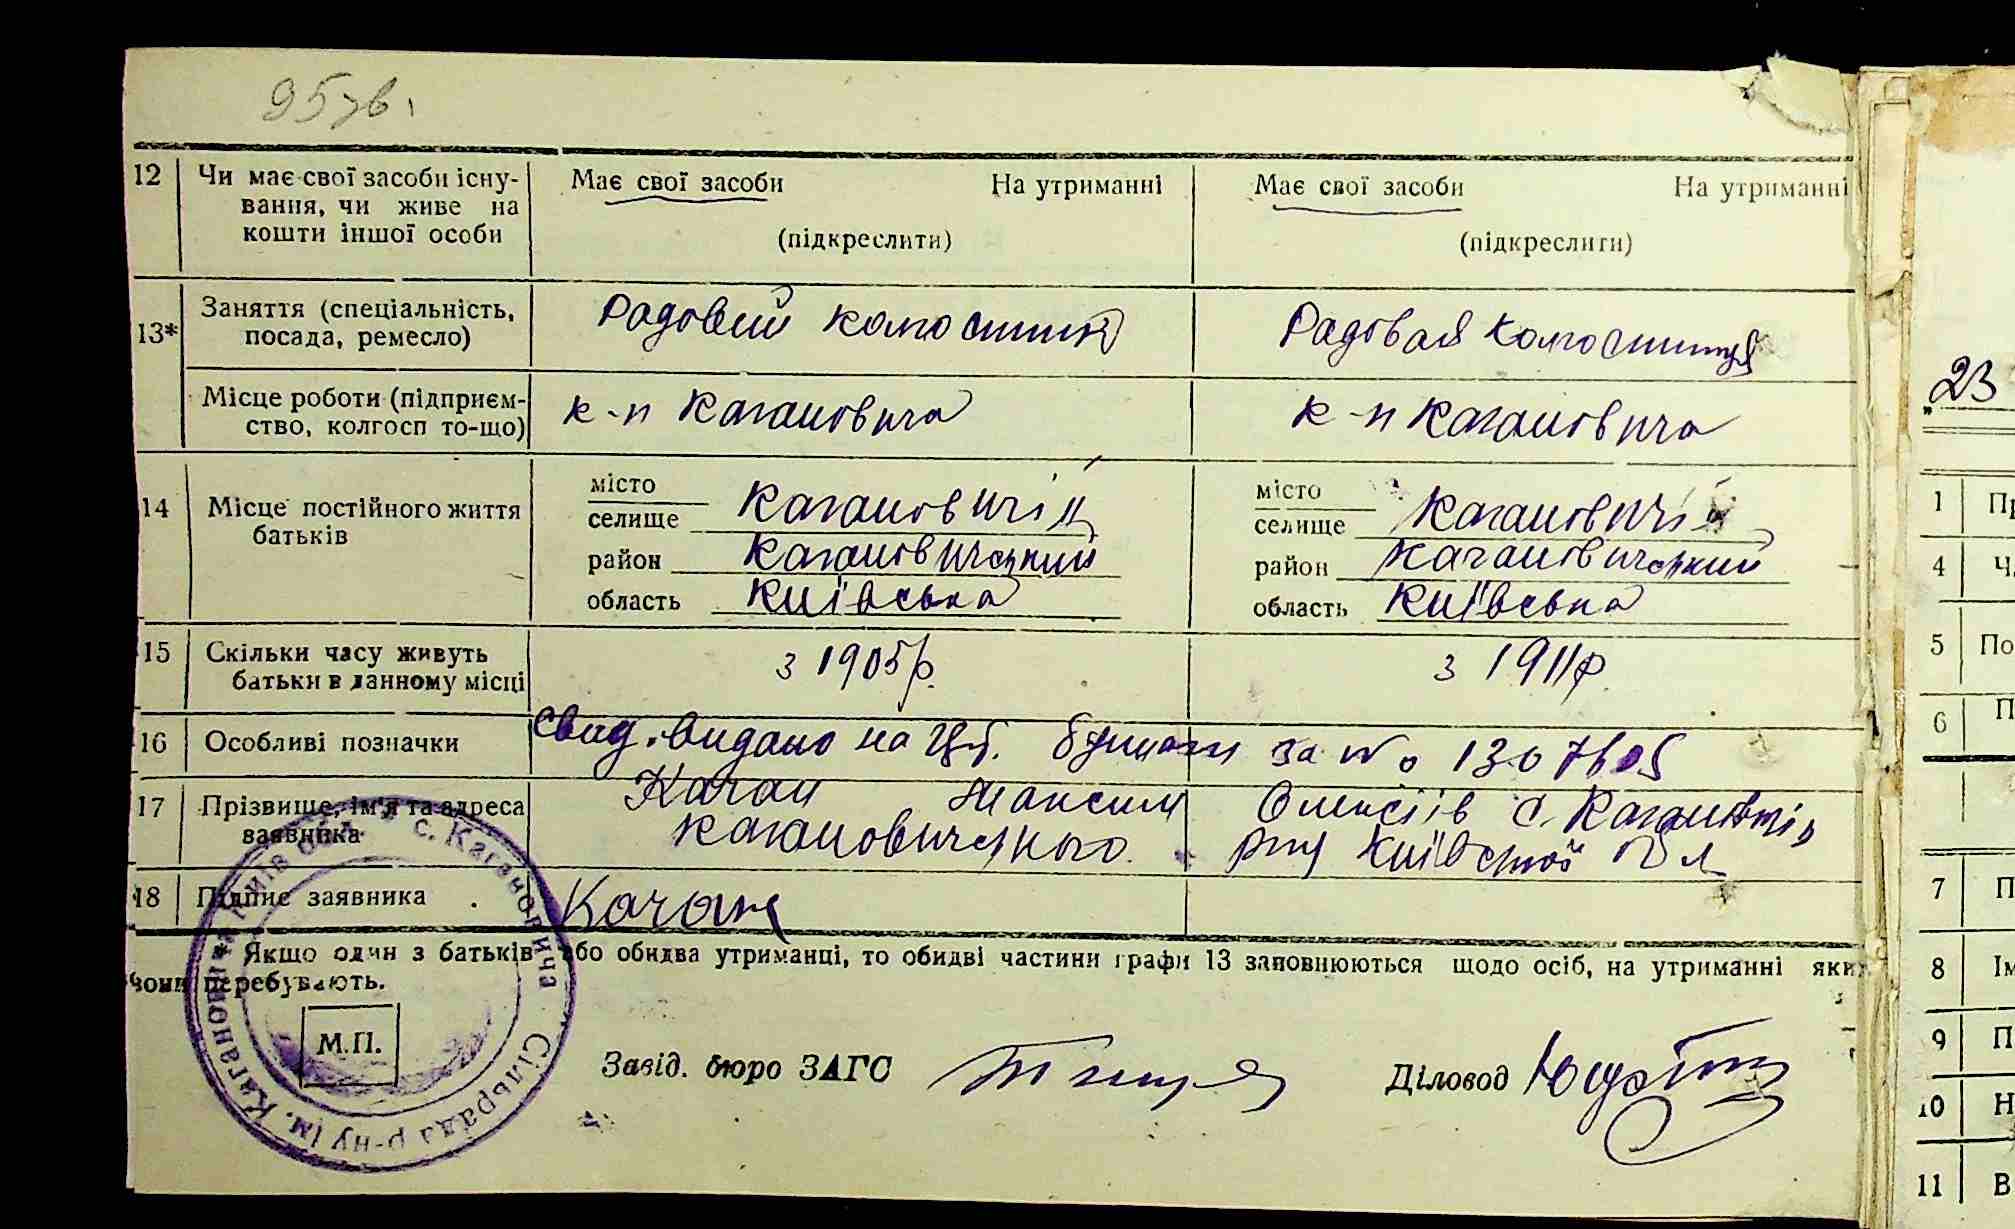 95зв.
12 Чи має свої засоби існу- Має свої засоби На утриманні Має свої засоби На утриманні
вання, чи живе на
кошти іншої особи (підкреслити) (підкреслити)
13* Заняття (спеціальність, Радовий колгоспник Радовая колгоспниця
посада, ремесло)
Місце роботи (підприєм- к-п Кагановича к-п Кагановича
ство, колгосп то-що)
14 Місце постійного життя місто Кагановичі місто Кагановичі
батьків селище селище
район Кагановичський район Кагановичський
область Київська область Київська
15 Скільки часу живуть з 1905 р. з 1911 р
батьки в данному місці
16 Особливі позначки Свид. видано на бумаги за № 1307605
17 Прізвище, ім'я та адреса Качан Максим Олексіїв с. Кагановичів
заявника Кагановичського р-ну Київської обл
18 Підпис заявника Качан
Якщо один з батьків або обидва утриманці, то обидві частини графи 13 заповнюються щодо осіб, на утриманні яких
вони перебувають.
с. Кагановича Сільрада р-ну ім. Кагановича Київ
М.П.
Завід. бюро ЗАГС Діловод
23
1 Пр
4 Ч
5 По
6 П
7 П
8 Ім
9 П
10 Н
11 В